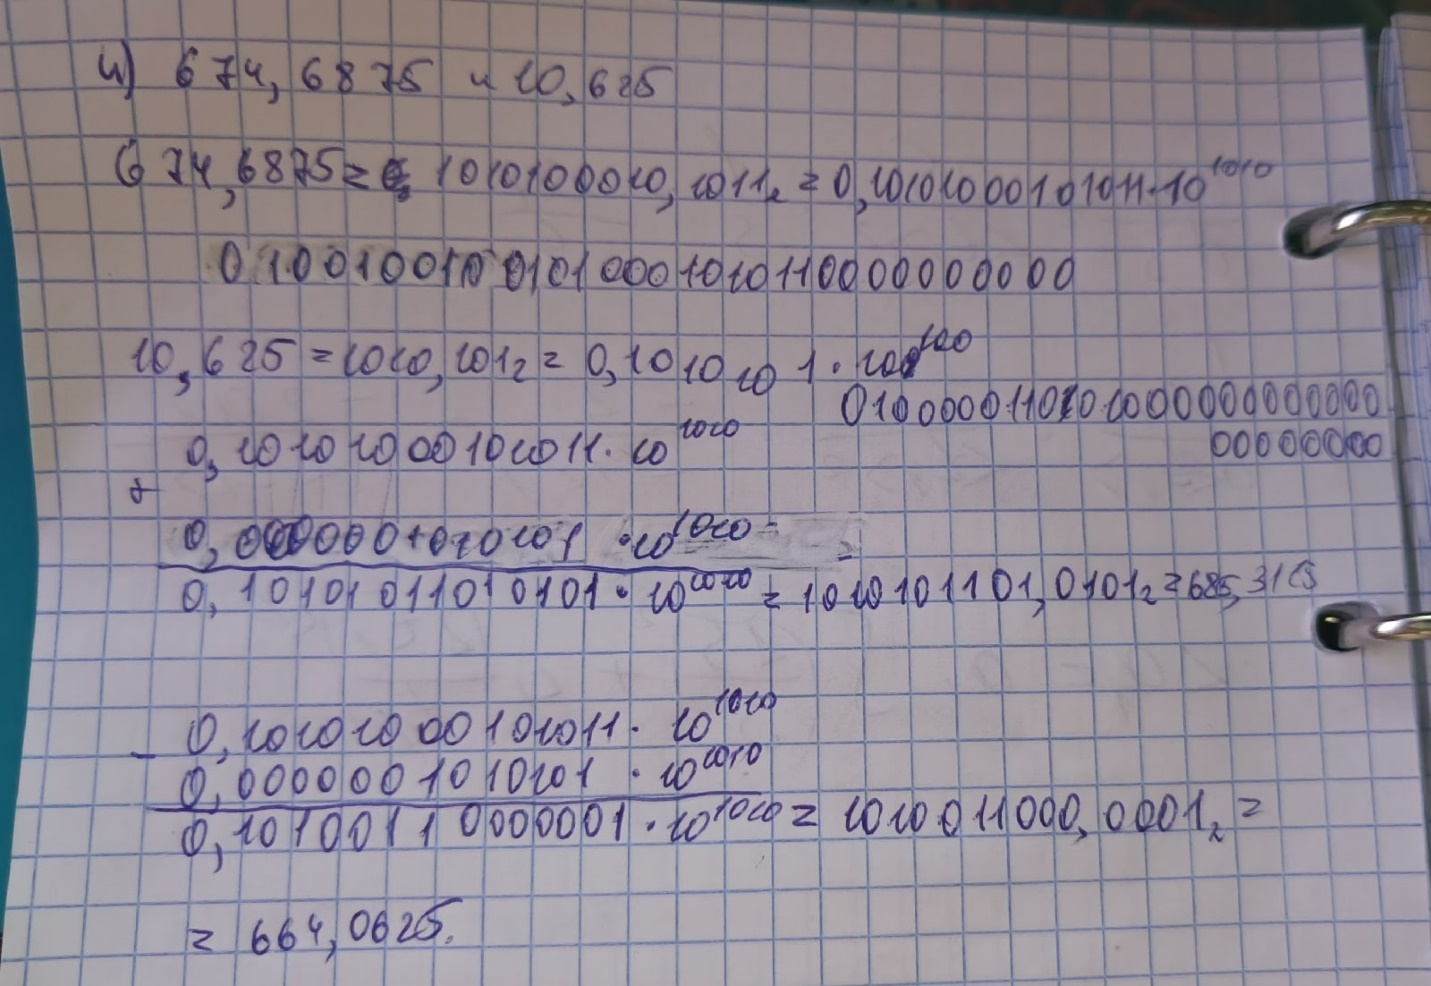 и) 674,6875 и 10,625
674,6875 = 1010100010,1011₂ = 0,10101000101011·10¹⁰¹⁰
01001001001010001010110000000000
10,625 = 1010,101₂ = 0,1010101·10¹⁰⁰
0100000110101000000000000
00000000
0,10101000101011·10¹⁰¹⁰
+
0,0000001010101·10¹⁰¹⁰ =
0,10101011010101·10¹⁰¹⁰ = 1010101101,0101₂ = 685,3125
0,10101000101011·10¹⁰¹⁰
-
0,0000001010101·10¹⁰¹⁰
0,10100110000001·10¹⁰¹⁰ = 1010011000,0001₂ =
= 664,0625.